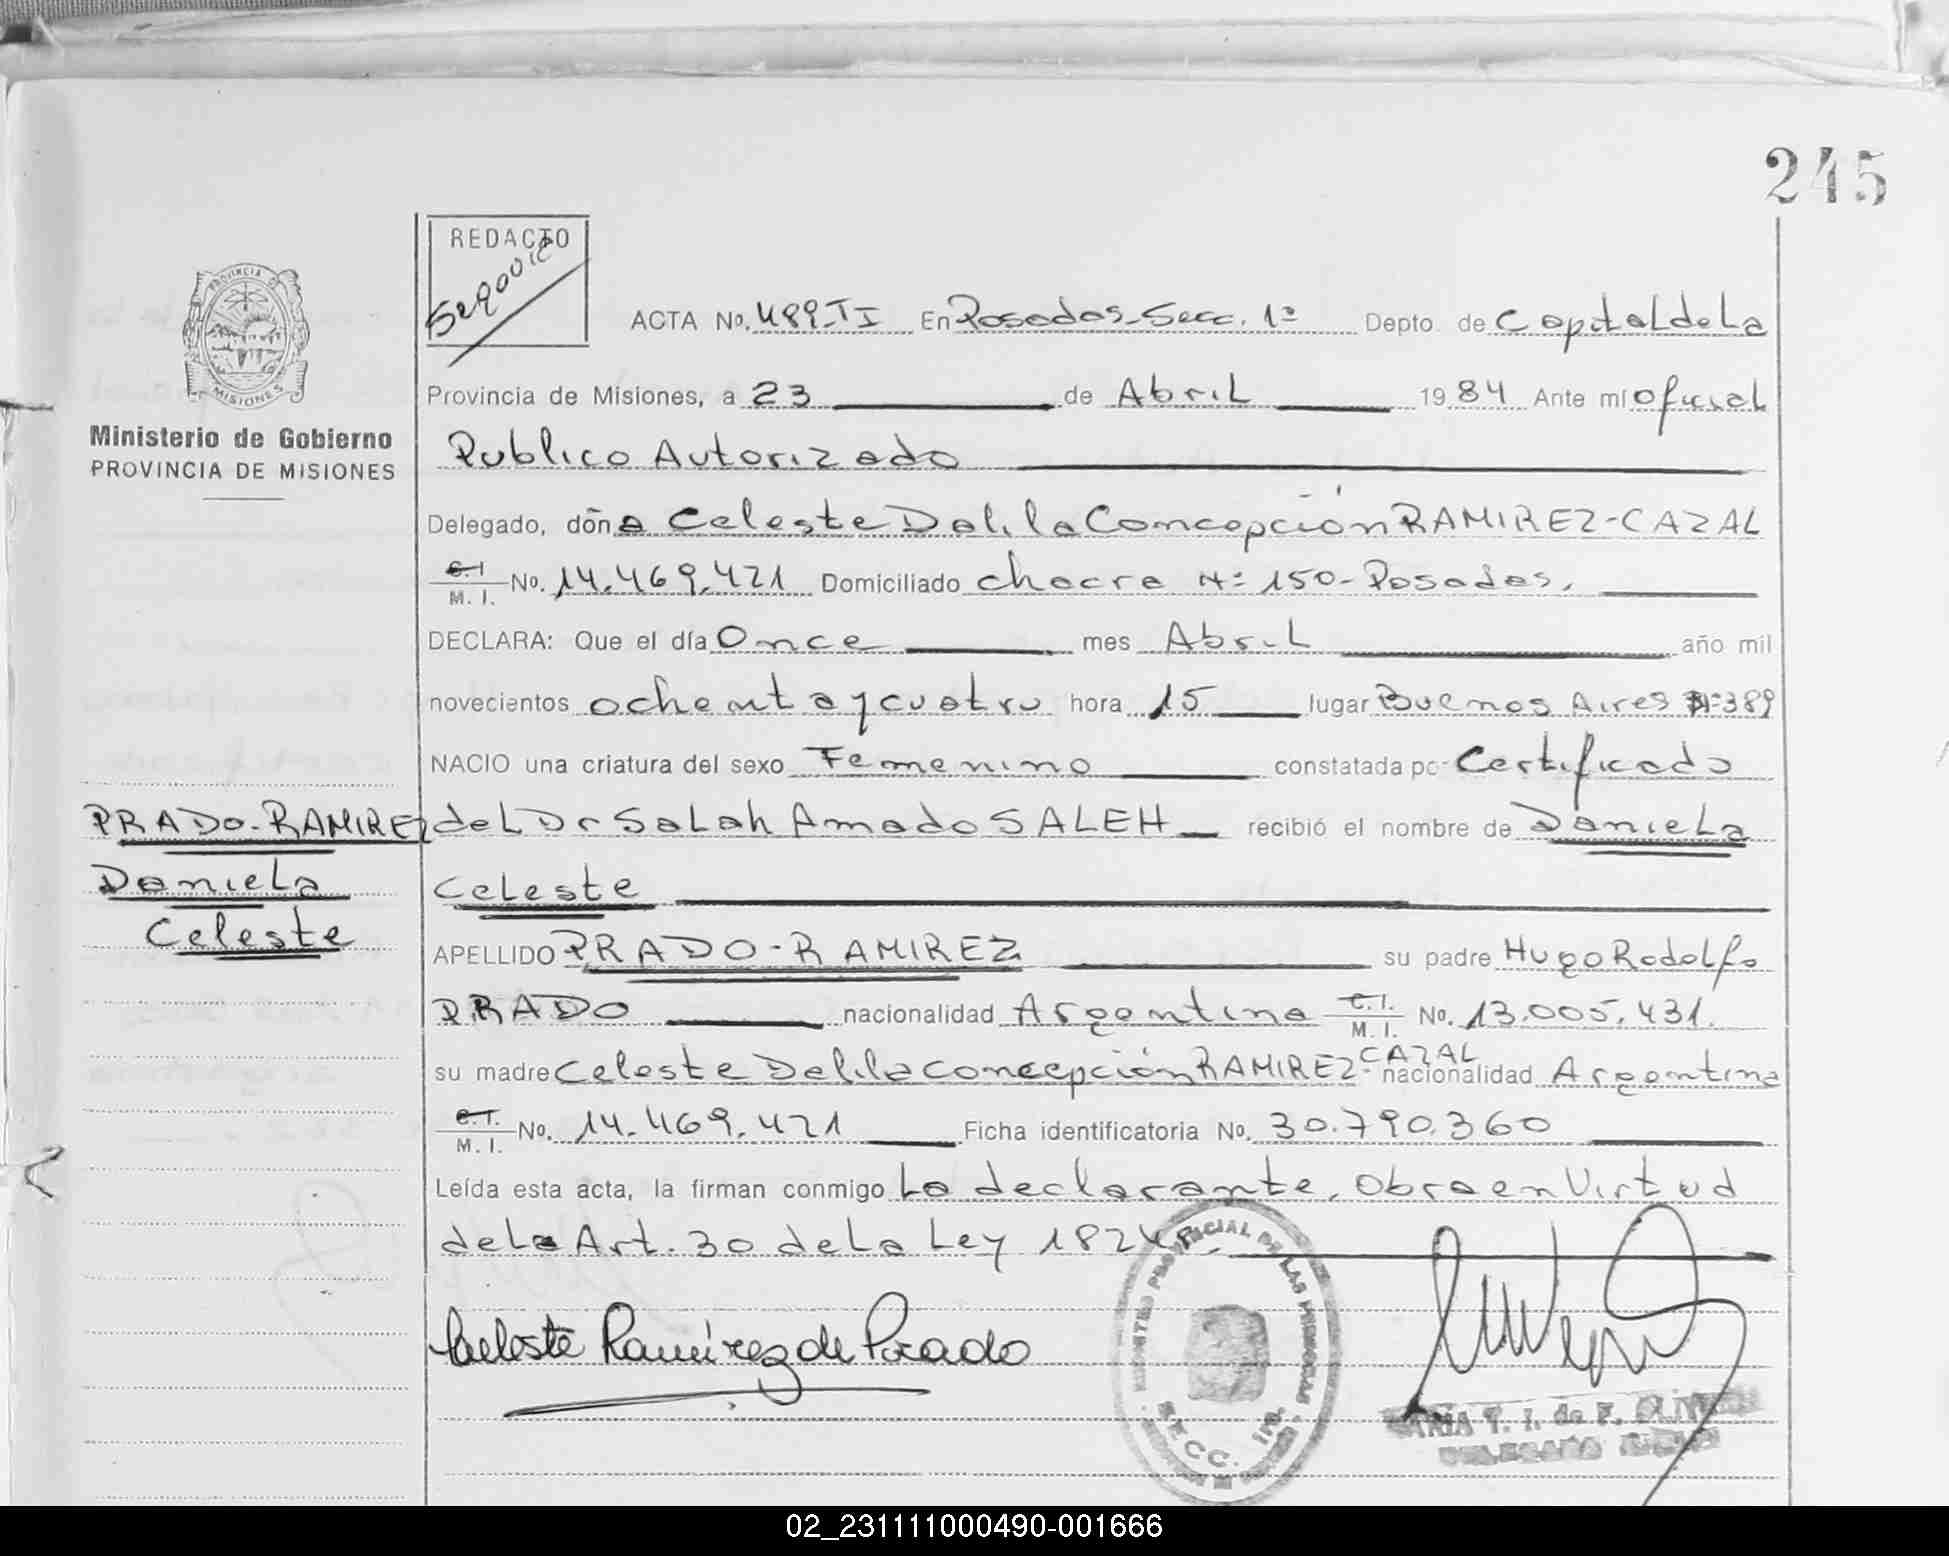 245
REDACTO
Segovia
ACTA No. 489-TI En Posadas-Secc. 1º Depto. de Capital de La
Provincia de Misiones, a 23 de Abril 1984 Ante mí oficial
Publico Autorizado
Ministerio de Gobierno
PROVINCIA DE MISIONES
Delegado, doña Celeste Delila Concepción RAMIREZ-CAZAL
C.I. M.I. No. 14.469.421 Domiciliado chacra Nº 150-Posadas,
DECLARA: Que el día Once mes Abril año mil
novecientos ochenta y cuatro hora 15 lugar Buenos Aires Nº 389
NACIO una criatura del sexo Femenino constatada po Certificado
PRADO-RAMIREZ
del Dr Salah Amado SALEH recibió el nombre de Daniela
Daniela
Celeste
Celeste
APELLIDO PRADO-RAMIREZ su padre Hugo Rodolfo
PRADO nacionalidad Argentina C.I. M.I. No. 13.005.431.
su madre Celeste Delila concepción RAMIREZ-CAZAL nacionalidad Argentina
C.I. M.I. No. 14.469.421 Ficha identificatoria No. 30.790.360
Leída esta acta, la firman conmigo La declarante, Obra en Virtud
del Art. 30 de La Ley 18248
Celeste Ramírez de Prado
PROVINCIA DE MISIONES
PROVINCIAL DE LAS PERSONAS
SECC. 1RA.
MARIA T. I. de F.
02_231111000490-001666